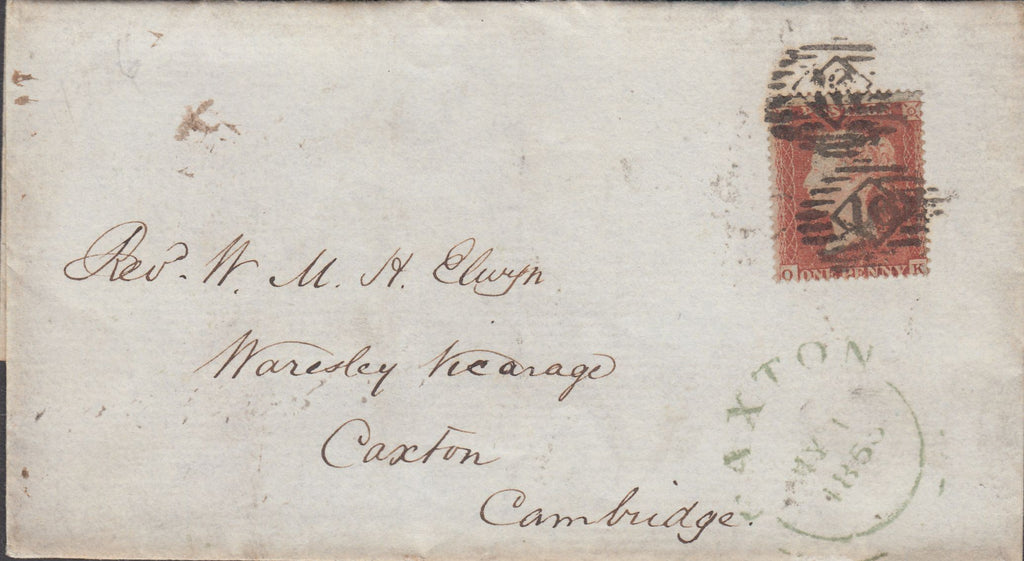 Rev. W. M. H. Elwyn
Waresley Vicarage
Caxton
Cambridge.
O ONE PENNY K
CAXTON
MY 1